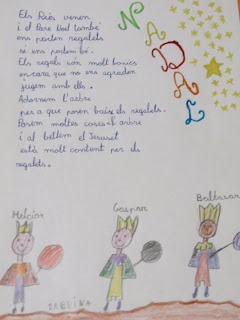 Els Reis venen
i el Pare Noel també
ens porten regalets
si ens portem bé.
Els regals són molt bonics
encara que no ens agraden
juguem amb ells.
Adornem l'arbre
per a que posen baix els regalets.
Posem moltes coses a l'arbre
i al betlem el Jesuset
està molt content per els
regalets.
NADAL
Melcior
Gaspar
Baltasar